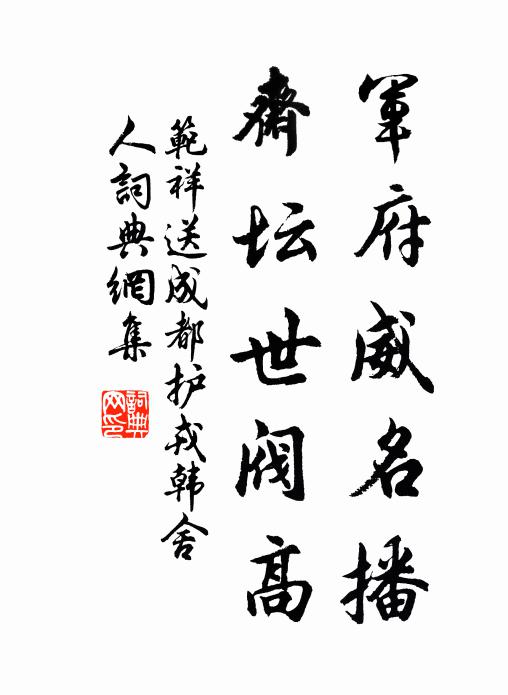 軍府威名播
齋坛世阀高
範祥送成都护戎韩舍
人詞典網集
詞典网印